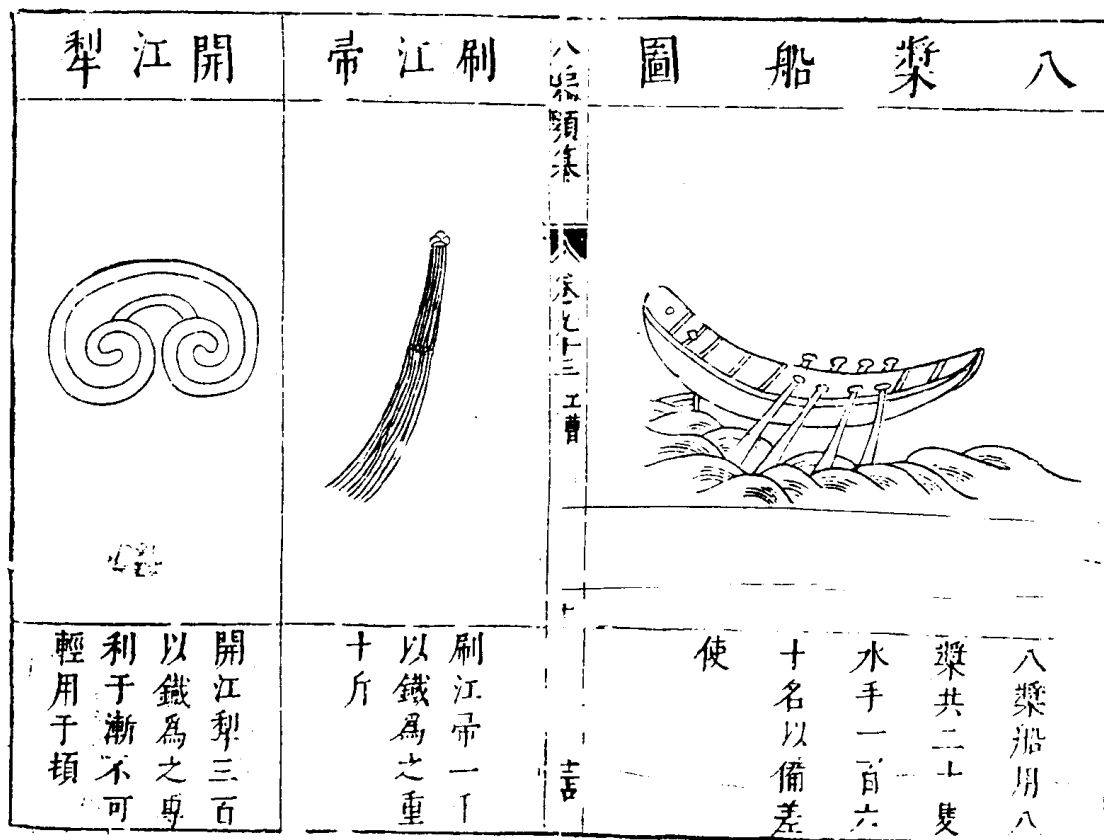 八槳船圖
八槳船用八
槳共二十隻
水手一百六
十名以備差
使
八編類纂
卷九十三 工曹
刷江帚
刷江帚一
以鐵爲之重
十斤
開江犁
開江犁三百
以鐵爲之專
利于漸不可
輕用于頓